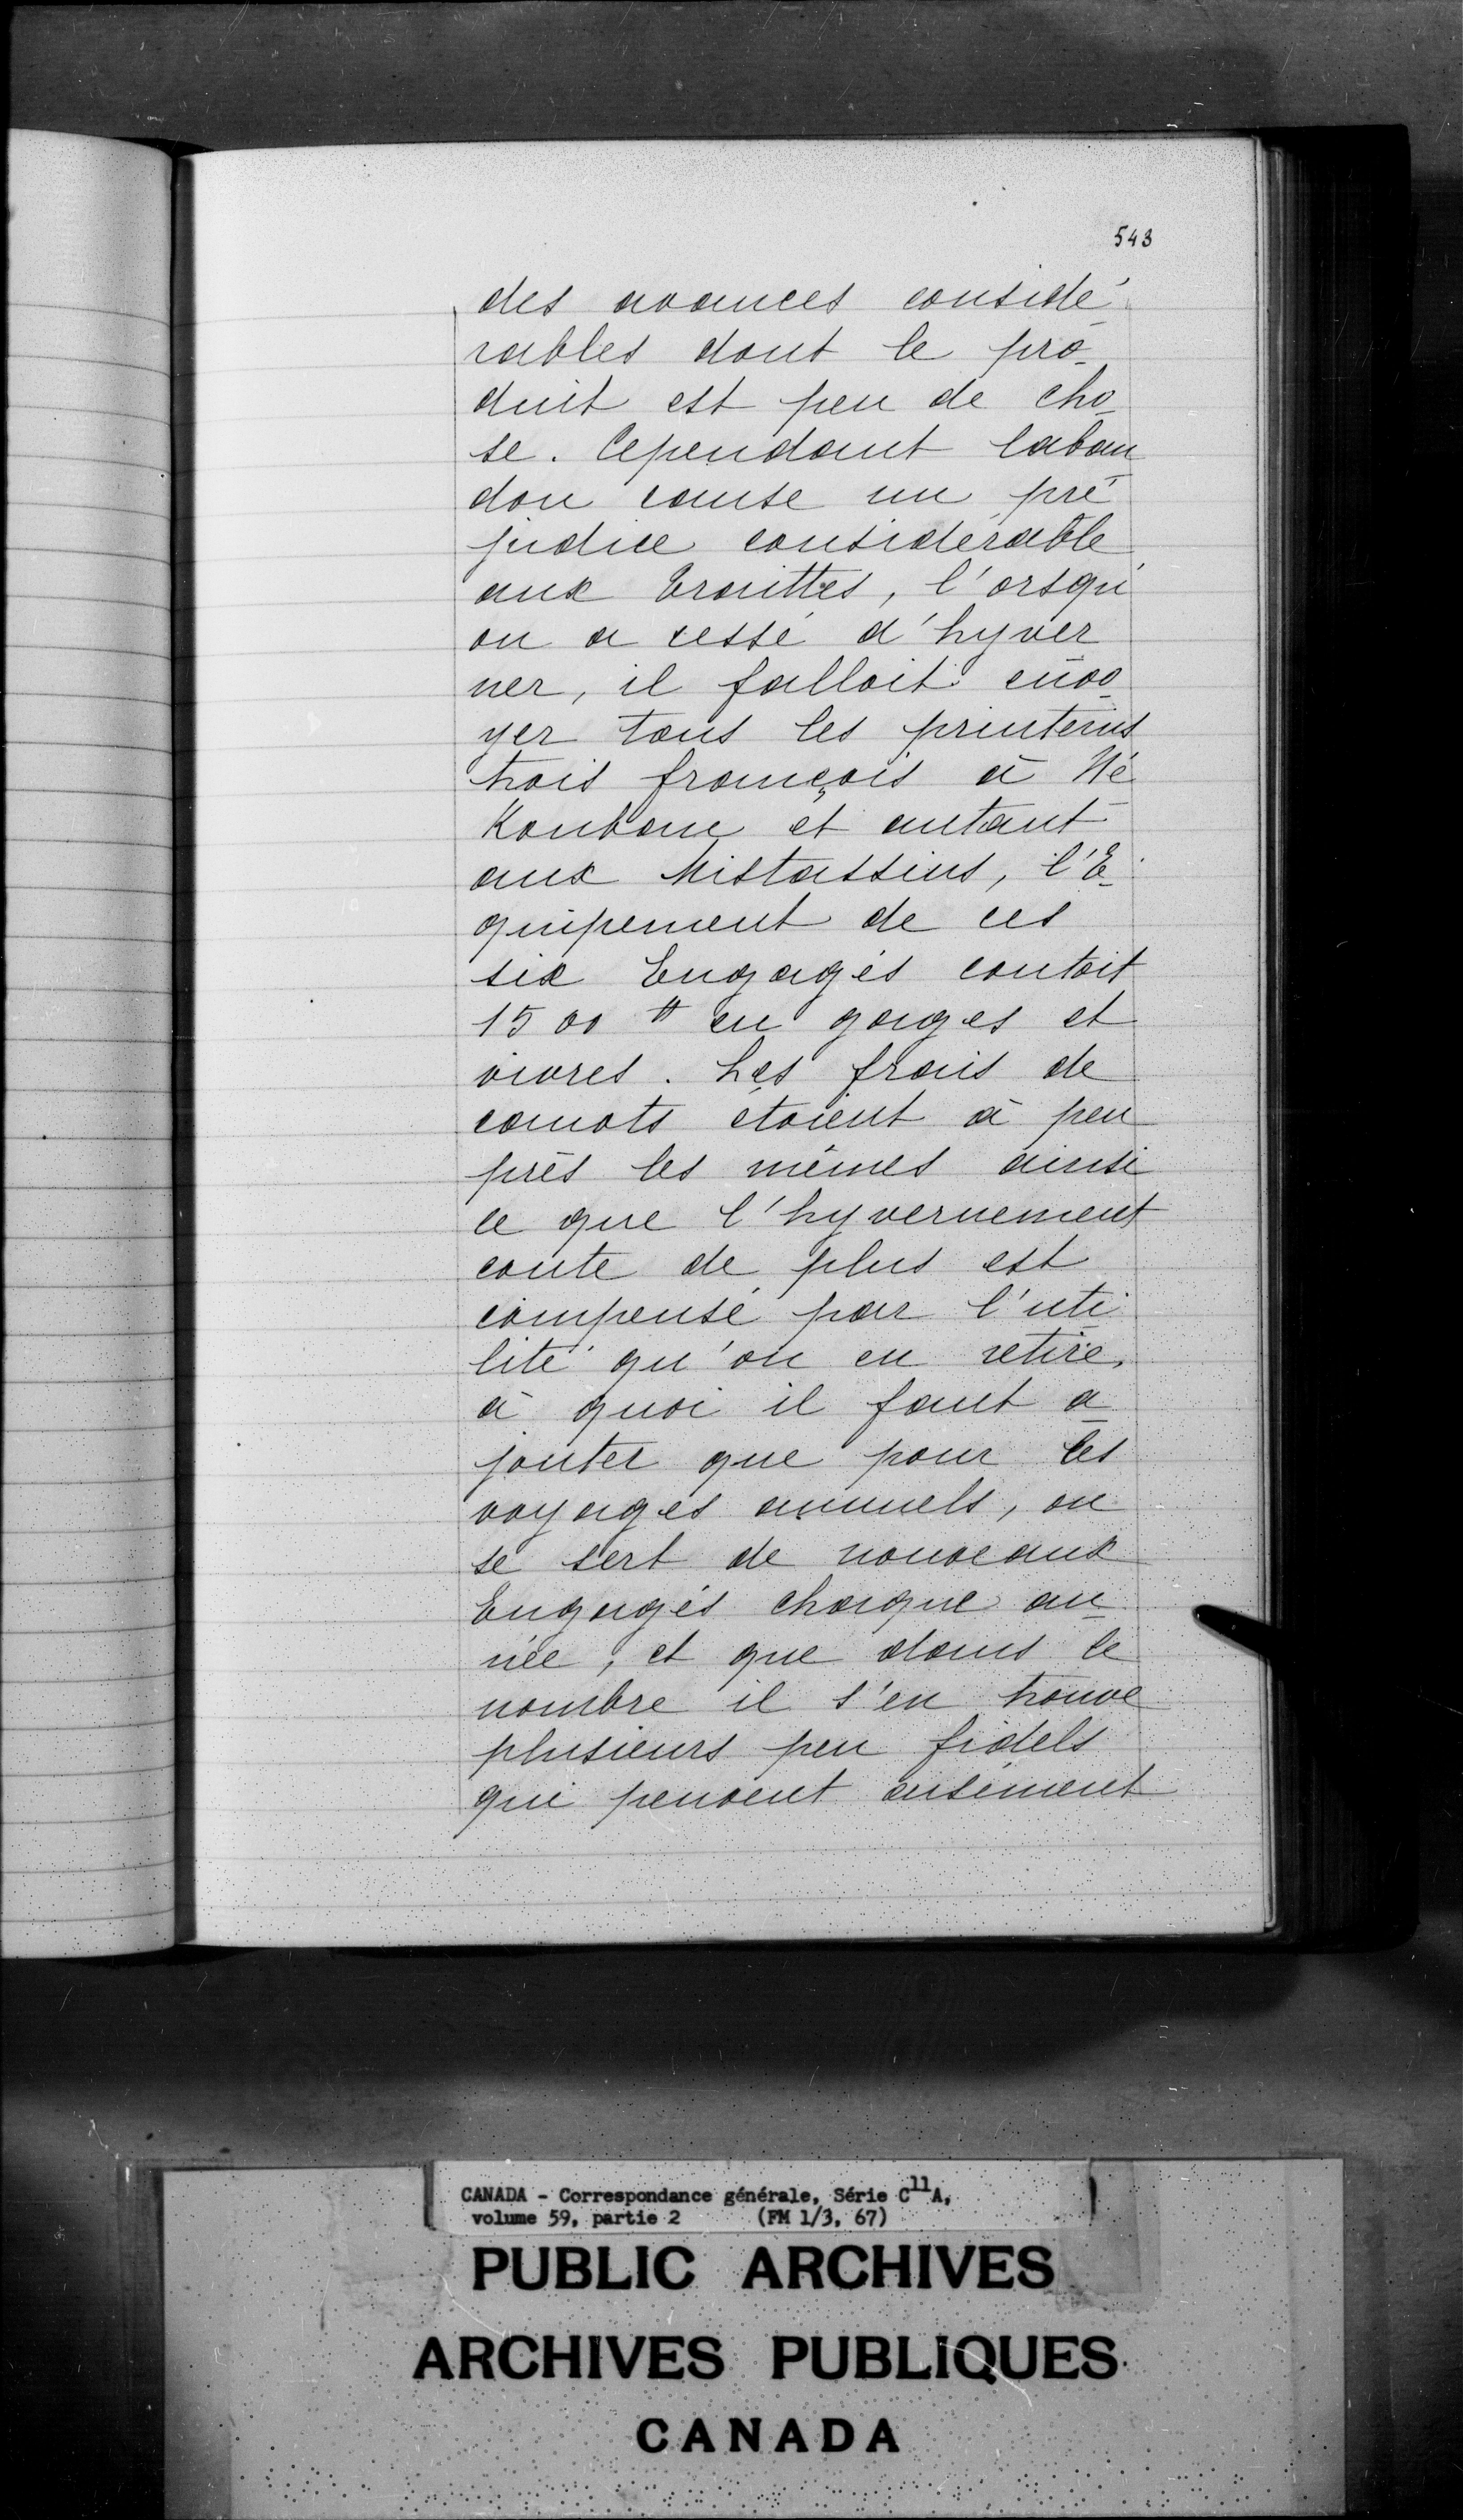 543
des avances considé
rables dont le pro-
duit est peu de cho-
se. Cependant laban
don cause un pré
judice considérable
aux traittes, l'orsqu'
on a cessé d'hyver
ner, il falloit envo-
yer tous les printems
trois françois à Né
Koubau et autant
aux Mistassins, l'E-
quipement de ces
six Engagés coutoit
1500 # en gages et
vivres. Les frais de
canots étoient à peu
près les mêmes ainsi
ce que l'hyvernement
coute de plus est
compensé par l'uti-
lité qu'on en retire,
à quoi il faut a-
jouter que pour les
voyages annuels, on
se sert de nouveaux
Engagés chaque an-
née, et que dans le
nombre il s'en trouve
plusieurs peu fidels
qui peuvent aisément
CANADA - Correspondance générale, Série C11A,
volume 59, partie 2 (FM 1/3, 67)
PUBLIC ARCHIVES
ARCHIVES PUBLIQUES
CANADA